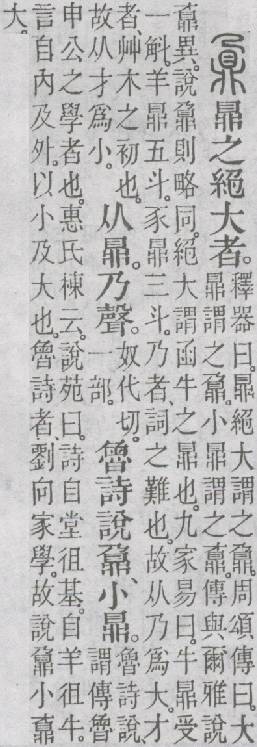 鼐 鼎之絕大者。
釋器曰。鼎絕大謂之鼐。周頌傳曰。大
鼎謂之鼐。小鼎謂之鼒。傳與爾雅說
鼒異。說鼐則略同。絕大謂函牛之鼎也。九家易曰。牛鼎受
一斛。羊鼎五斗。豕鼎三斗。乃者、詞之難也。故从乃爲大。才
者、艸木之初也。
故从才爲小。
从鼎。乃聲。
奴代切。
一部。
魯詩說鼐、小鼎。
魯詩說
謂傳魯
申公之學者也。惠氏棟云。說苑曰。詩自堂徂基。自羊徂牛。
言自內及外。以小及大也。魯詩者、劉向家學。故說鼐小鼒
大。